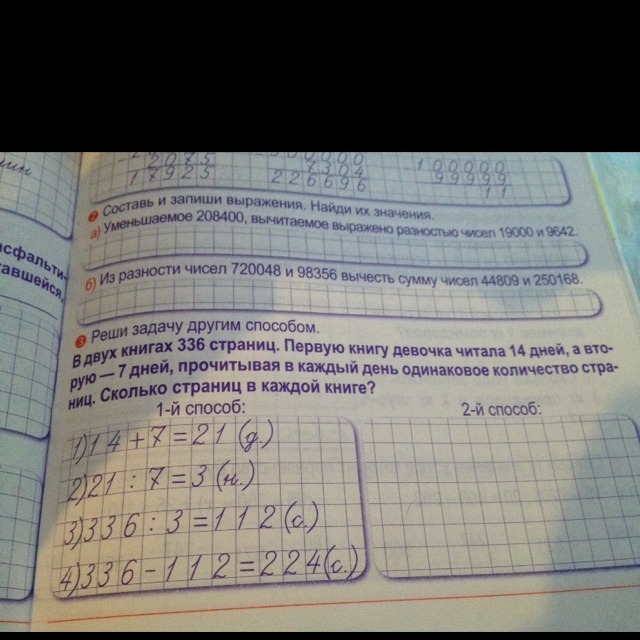 2075
7304
100000
17925
226696
99999
11
2 Составь и запиши выражения. Найди их значения.
а) Уменьшаемое 208400, вычитаемое выражено разностью чисел 19000 и 9642.
б) Из разности чисел 720048 и 98356 вычесть сумму чисел 44809 и 250168.
3 Реши задачу другим способом.
В двух книгах 336 страниц. Первую книгу девочка читала 14 дней, а вто-
рую — 7 дней, прочитывая в каждый день одинаковое количество стра-
ниц. Сколько страниц в каждой книге?
1-й способ:
2-й способ:
1) 14+7=21 (д.)
2) 21:7=3 (н.)
3) 336:3=112 (с.)
4) 336-112=224 (с.)